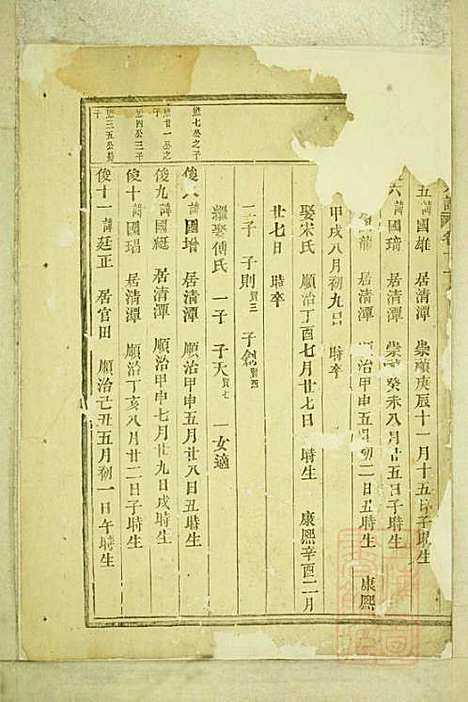 五 諱國雄 崇禎庚辰十一月十五日子時生
六 諱國琦 居清潭 崇 癸未八月廿五日子時生
龍 居清潭 順治甲申五月初二日丑時生 康熙
甲戌八月初九日 時卒
娶宋氏 順治丁酉七月廿七日 時生 康熙辛酉二月
廿七日 時卒
二子 子則賢三 子創賢四
繼娶傅氏 一子 子天賢七 一女適
俊八 諱國增 居清潭 順治甲申五月廿八日丑時生
俊九 諱國綎 居清潭 順治甲申七月廿九日戌時生
俊十 諱國瑁 居清潭 順治丁亥八月廿二日子時生
俊十一 諱廷正 居官田 順治己丑五月初一日午時生
七公之子
廿一公之
四公三子
三五公長
子